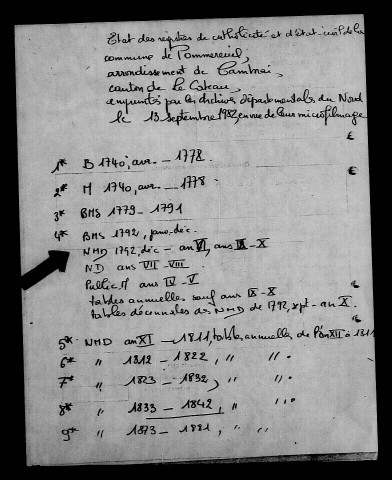 Etat des registres de catholicité et d'état-civil de la
commune de Pommereuil,
arrondissement de Cambrai,
canton de Le Cateau,
empruntés par les archives départementales du Nord
le 13 septembre 1982, en vue de leur microfilmage
1* B 1740, avr. _ 1778.
2* M 1740, avr. _ 1778
3* BMS 1779 _ 1791
4* BMS 1792, janv-déc.
NMD 1792, déc _ an VI, ans IX _ X
ND ans VII _ VIII.
Public. M ans IV _ V
tables annuelles sauf ans IX _ X
tables décennales des NMD de 1792, sept _ an X.
5* NMD an XI _ 1811, tables annuelles de l'an XII à 1811
6* " 1812 _ 1822, " ".
7* " 1823 _ 1832, " ".
8* " 1833 _ 1842, " ".
9* " 1873 _ 1881, " "